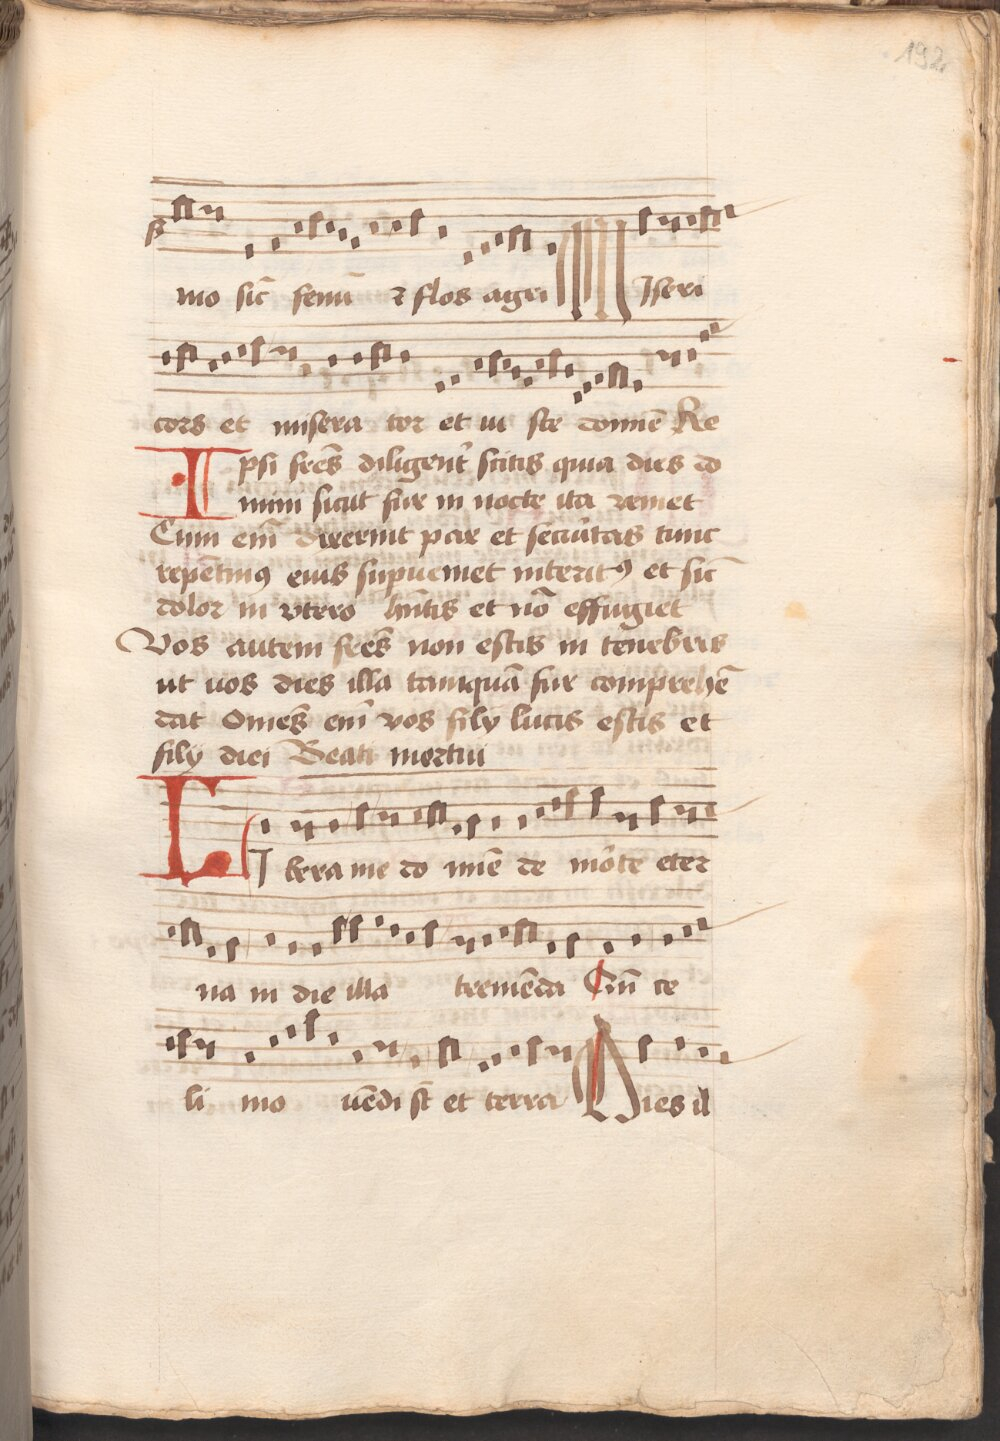 192
mo sic̄ fenū ⁊ flos agri Miseri
cors et misera tor et iu ste domīe Re
Ipsi frēs diligent̄ scitis quia dies do
mini sicut fur in nocte ita veniet
Cum em̄ dixerint pax et securitas tunc
repētinꝯ eius supueniet interitꝯ et sic̄
dolor in vtero hn̄tis et nō effugiet
Vos autem frēs non estis in tenebris
ut uos dies illa tamquā fur comprehē
dat Om̄es em̄ vos filij lucis estis et
filij diei Beati mortui
LIbera me do mīe de mōte eter
na in die illa tremēda Cūi ce
li mo uēdi st̄ et terra Dies il